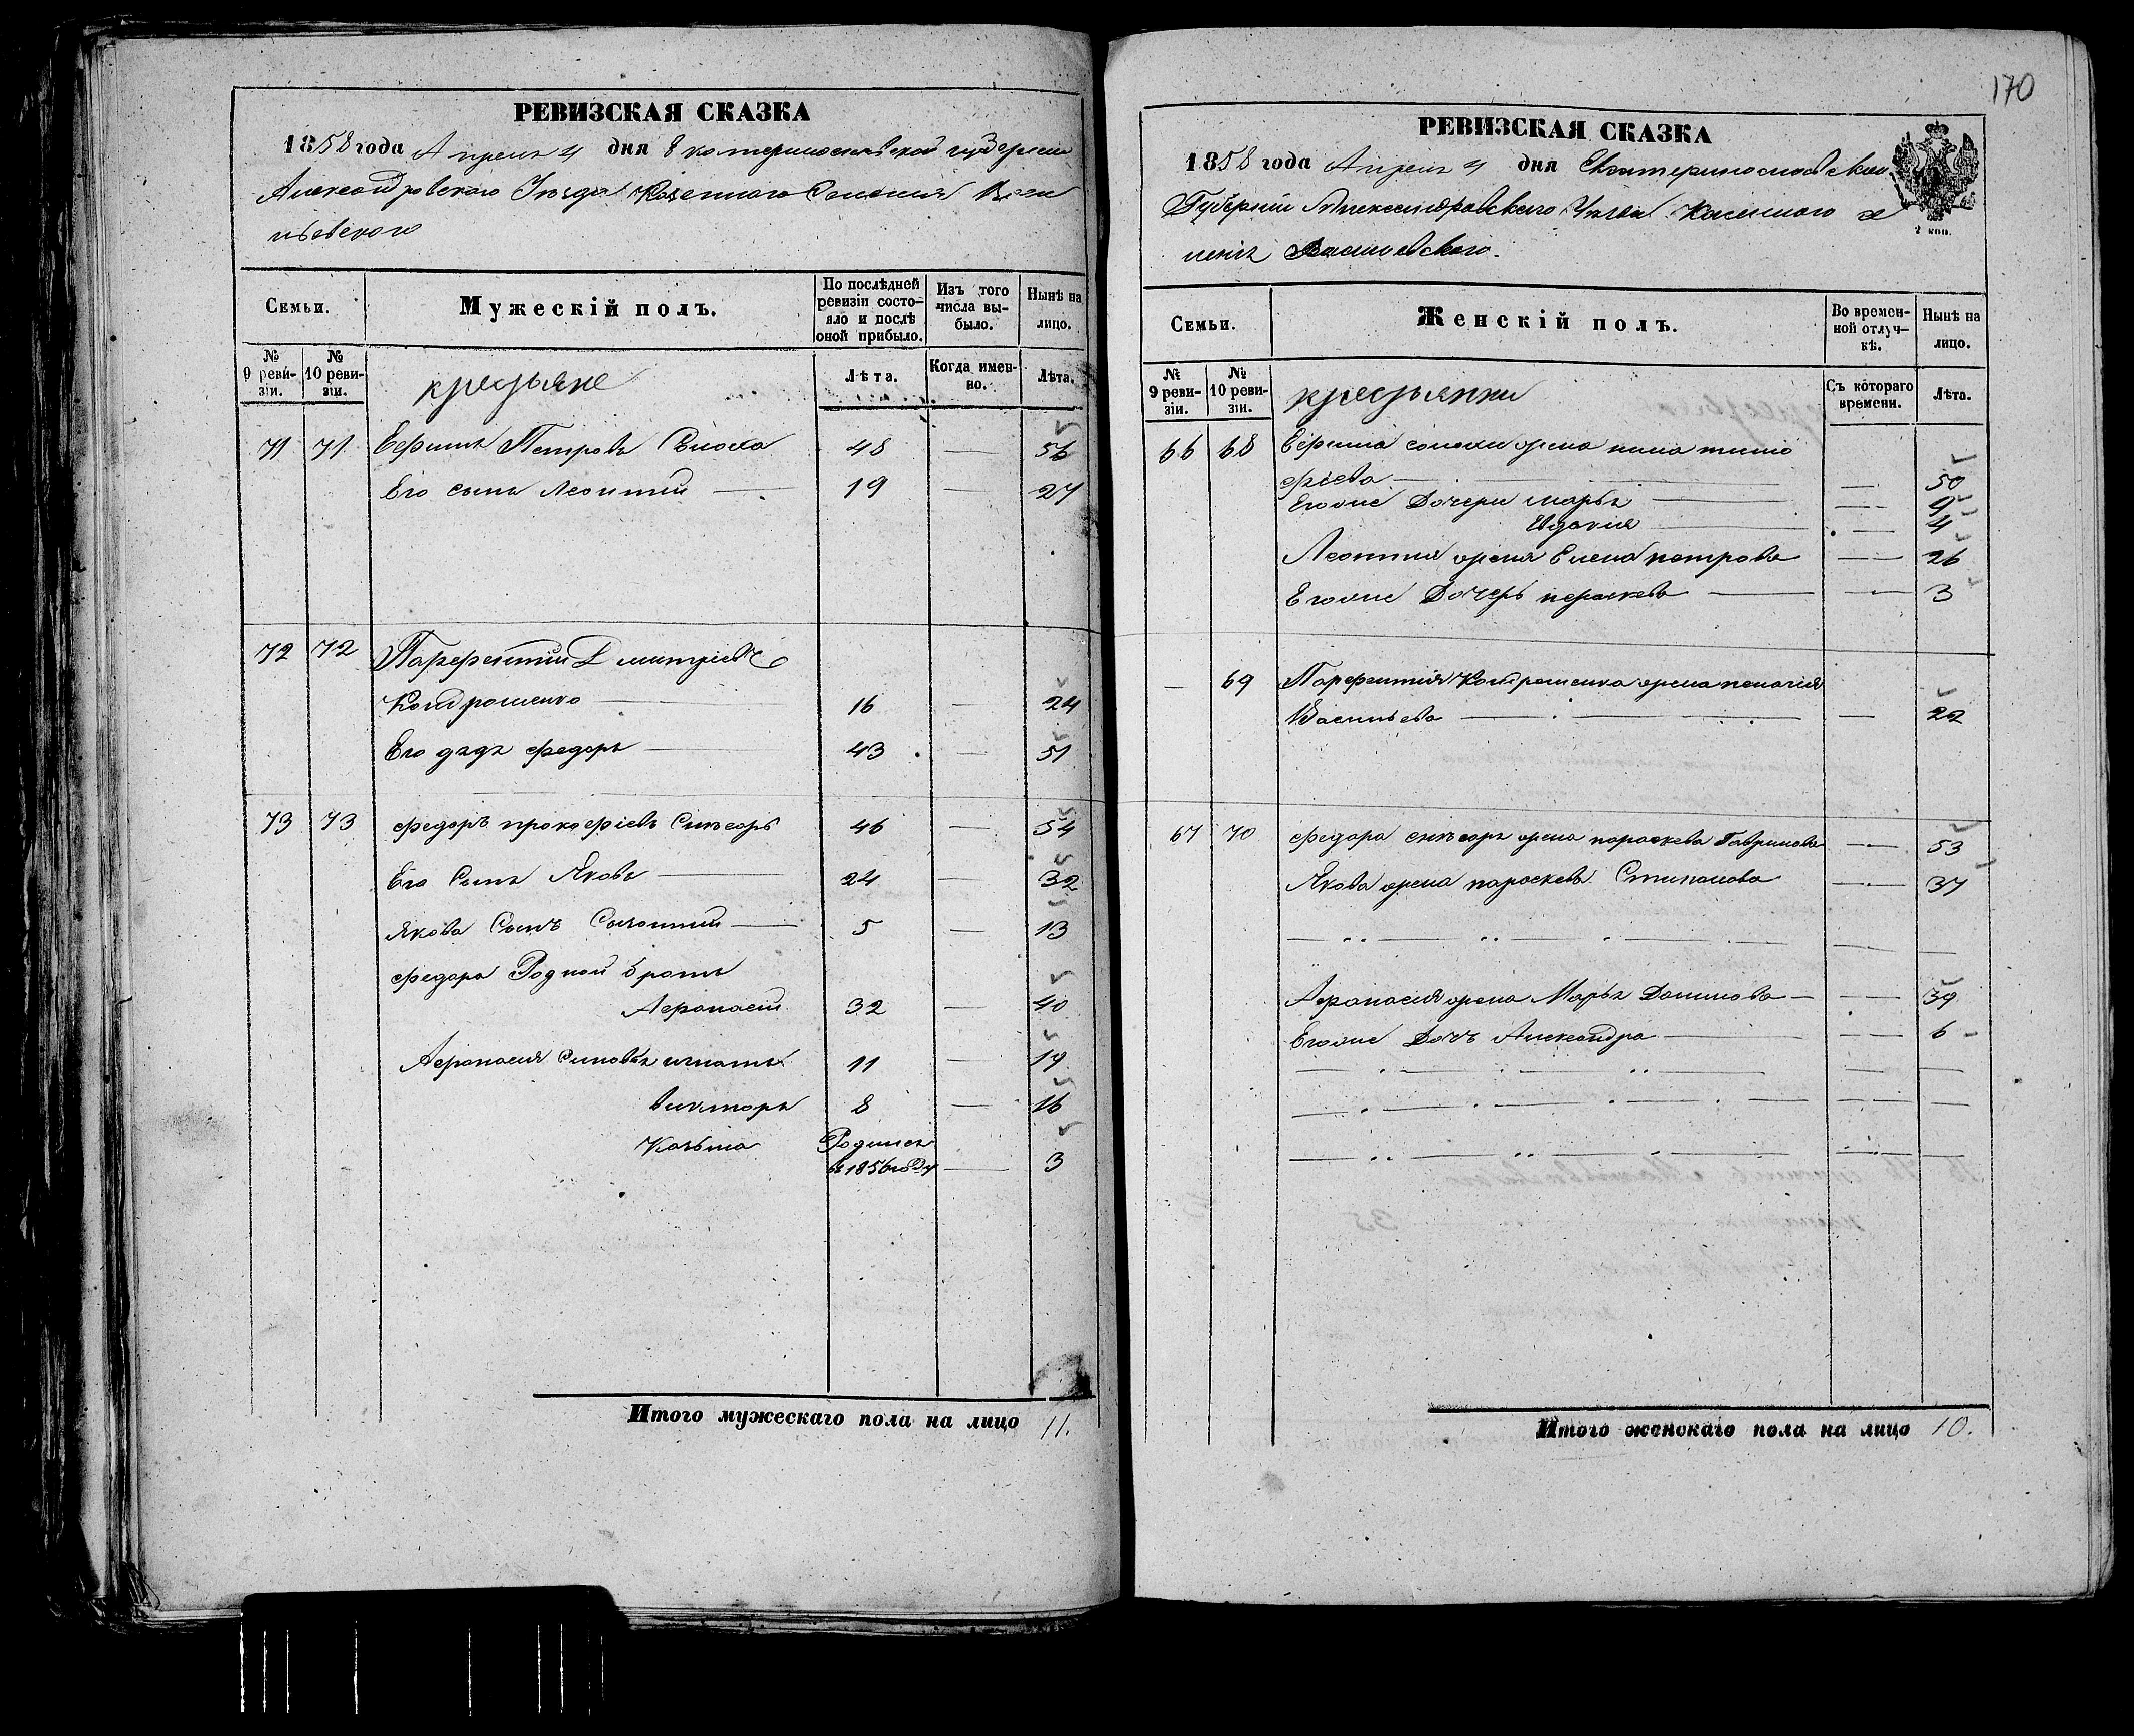 РЕВИЗСКАЯ СКАЗКА
1858 года Апреля 4 дня Екатеринославской губернии
Александровского Уезда Казенного Селения Васи
льевского
Семьи.
Мужескій полъ.
По послѣдней ревизіи состояло и послѣ оной прибыло.
Изъ того числа выбыло.
Нынѣ на лицо.
№ 9 ревизіи.
№ 10 ревизіи.
крестьяне
Лѣта.
Когда именно.
Лѣта.
71 71 Ефимъ Петровъ 48 — 56
Его сынъ Леонтий — 19 — 27
72 72 Парфентий Дмитріевъ
Кондрашенко — 16 — 24
Его дядя федоръ — 43 — 51
73 73 федоръ прокофіевъ Снѣсарь 46 — 54
Его Сынъ Яковъ — 24 — 32
Якова Сынъ — 5 — 13
федора Родной братъ
Афонасий 32 — 40
Афонасия Сыновья игнатъ 11 — 19
викторъ 8 — 16
Козьма Родился
въ 1856 году — 3
Итого мужескаго пола на лицо 11.
170
РЕВИЗСКАЯ СКАЗКА
1858 года Апреля 4 дня Екатеринославской
Губерніи Александровского Уезда Казенного се
ленія Васильевского.
2 коп.
Семьи.
Женскій полъ.
Во временной отлучкѣ.
Нынѣ на лицо.
№ 9 ревизіи.
№ 10 ревизіи.
крестьянки
Съ котораго времени.
Лѣта.
66 68 Ефима жена тимо
фіева — — 50
Егоже Дочери марья — — 9
Евдокия — — 4
Леонтия жена Елена петрова — 26
Егоже Дочерь параскева — — 3
— 69 Парфентия Кондрашенка жена пелагия
Васильева — — 22
67 70 федора снѣсаря жена параскева Гаврилова — 53
Якова жена параскева Стипанова — 37
Афонасия жена Марья Данилова — — 39
Егоже Дочь Александра — — 6
Итого женскаго пола на лицо 10.